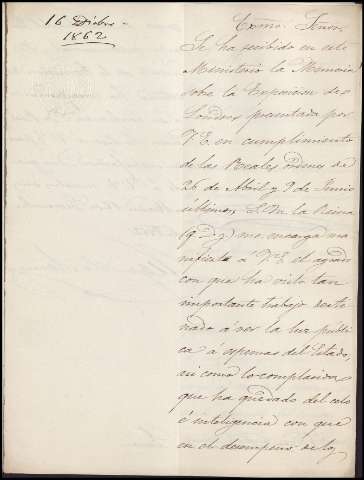 16 Dicbre
1862
Excmo. Señor,
Se ha recibido en este
Ministerio la Memoria
sobre la Exposicion de
Londres presentada por
V.E. en cumplimiento
de las Reales órdenes de
26 de Abril y 9 de Junio
últimos. S. M. la Reina
(q. D. g.) me encarga ma
nifieste a V.E. el agrado
con que ha visto tan
importante trabajo desti
nado á ver la luz públi
ca á espensas del Estado,
asi como lo complacida
que ha quedado del celo
é inteligencia con que
en el desempeño de la